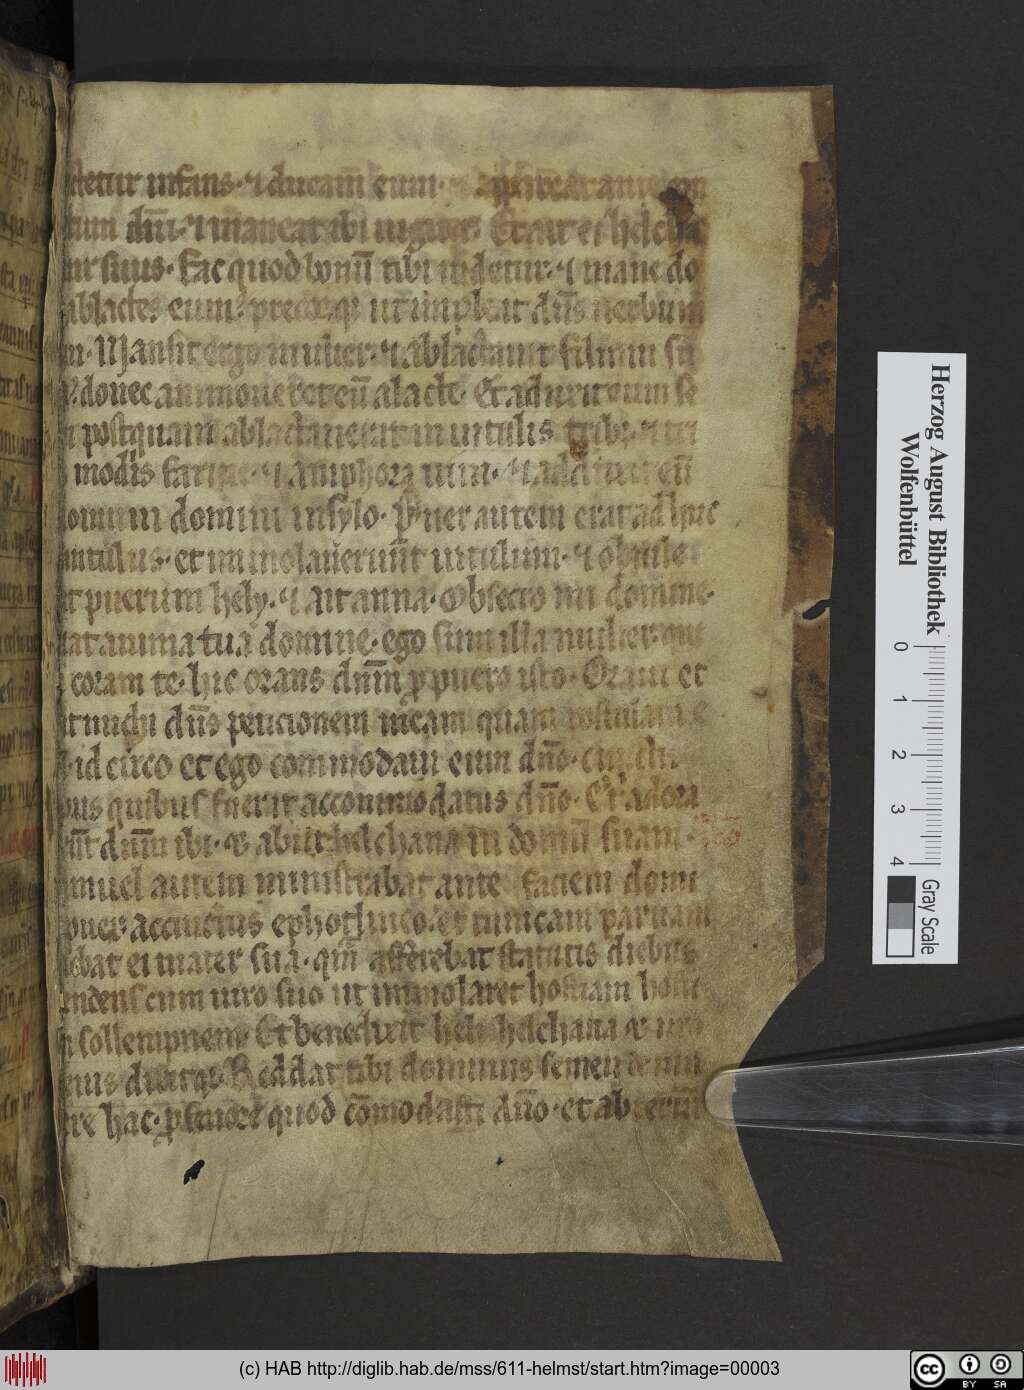 ctetur infans· ⁊ ducam eum· ⁊ ap
tum dn̄i· ⁊ maneat ibi iugiter Et ait ei helcha
ur suus· fac quod bonū tibi uidetur· ⁊ mane do
ablactes eum· precorq; ut impleat dn̄s uerbum
m· Mansit ergo mulier· ⁊ ablactauit filium su
donec ammoueret eū a lacte· Et adduxit eum se
postquam ablactauerat in uitulis trib; ⁊ tri
modiis farine· ⁊ amphora uini· ⁊ adduxit eū
omum domini in sylo· puer autem erat adhuc
untulus· et immolauerunt uitulum· ⁊ obtuler
t puerum hely· ⁊ ait anna· Obsecro mi domine·
uat anima tua domine· ego sum illa mulier que
coram te· hic orans dn̄m p̄ puero isto· Oraui et
t michi dn̄s peticionem meam quam postulaui e
id circo et ego commodaui eum dn̄o· cunctis
bus quibus fuerit accommodatus dn̄o· Et adora
unt dn̄m ibi· ⁊ abiit helchana in domū suam·
muel autem ministrabat ante faciem domi
puer accinctus ephoth lineo· et tunicam paruam
iebat ei mater sua· qm̄ afferebat statutis diebus
endens cum uiro suo ut immolaret hostiam
sollempnem· Et benedixit heli helchana ⁊ uxo
eius· dixitq; Reddat tibi dominus semen de mu
re hac· p fenore quod cōmodasti dn̄o· et abierun
Herzog August Bibliothek
Wolfenbüttel
0 1 2 3 4
Gray Scale
(c) HAB http://diglib.hab.de/mss/611-helmst/start.htm?image=00003
cc BY SA